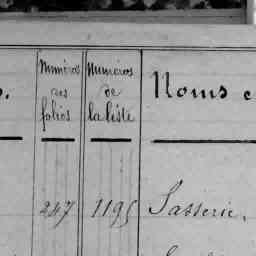 Numéros des folios
Numéros de la liste
Noms
247 1195 Sasserie,